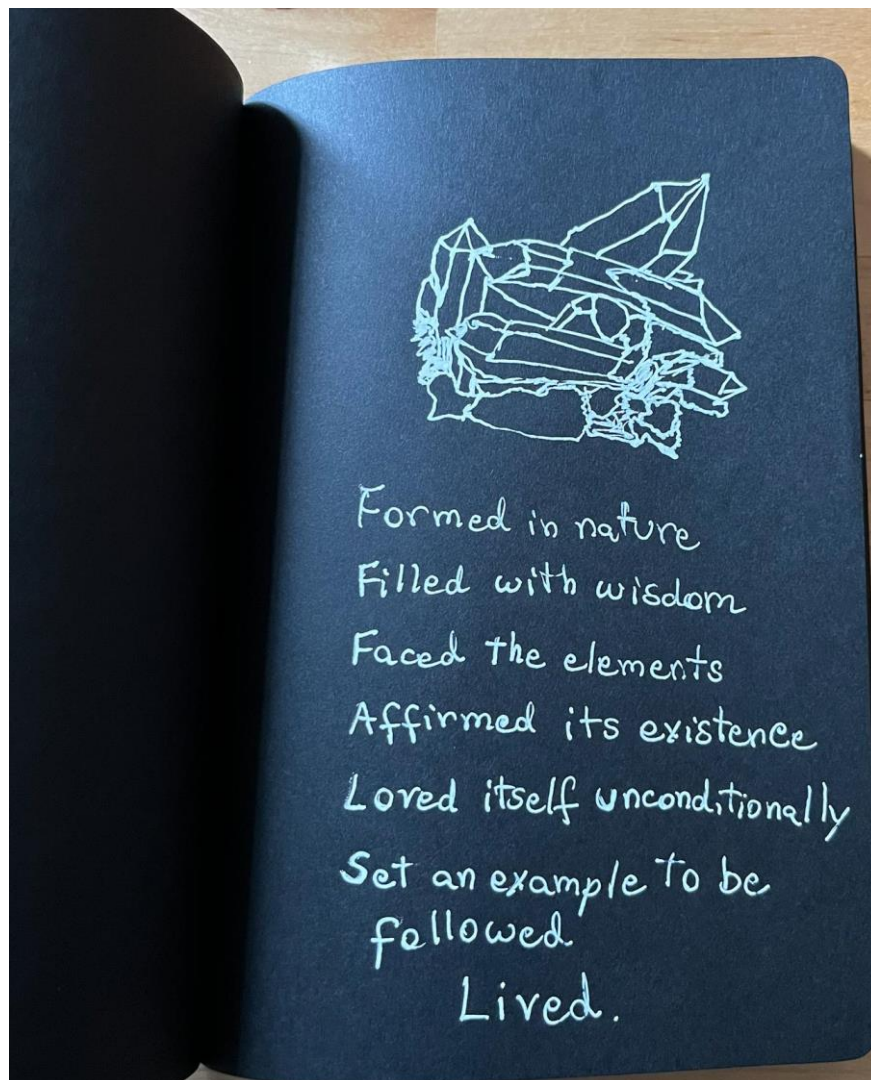 Formed in nature
Filled with wisdom
Faced the elements
Affirmed its existence
Loved itself unconditionally
Set an example to be
followed
Lived.